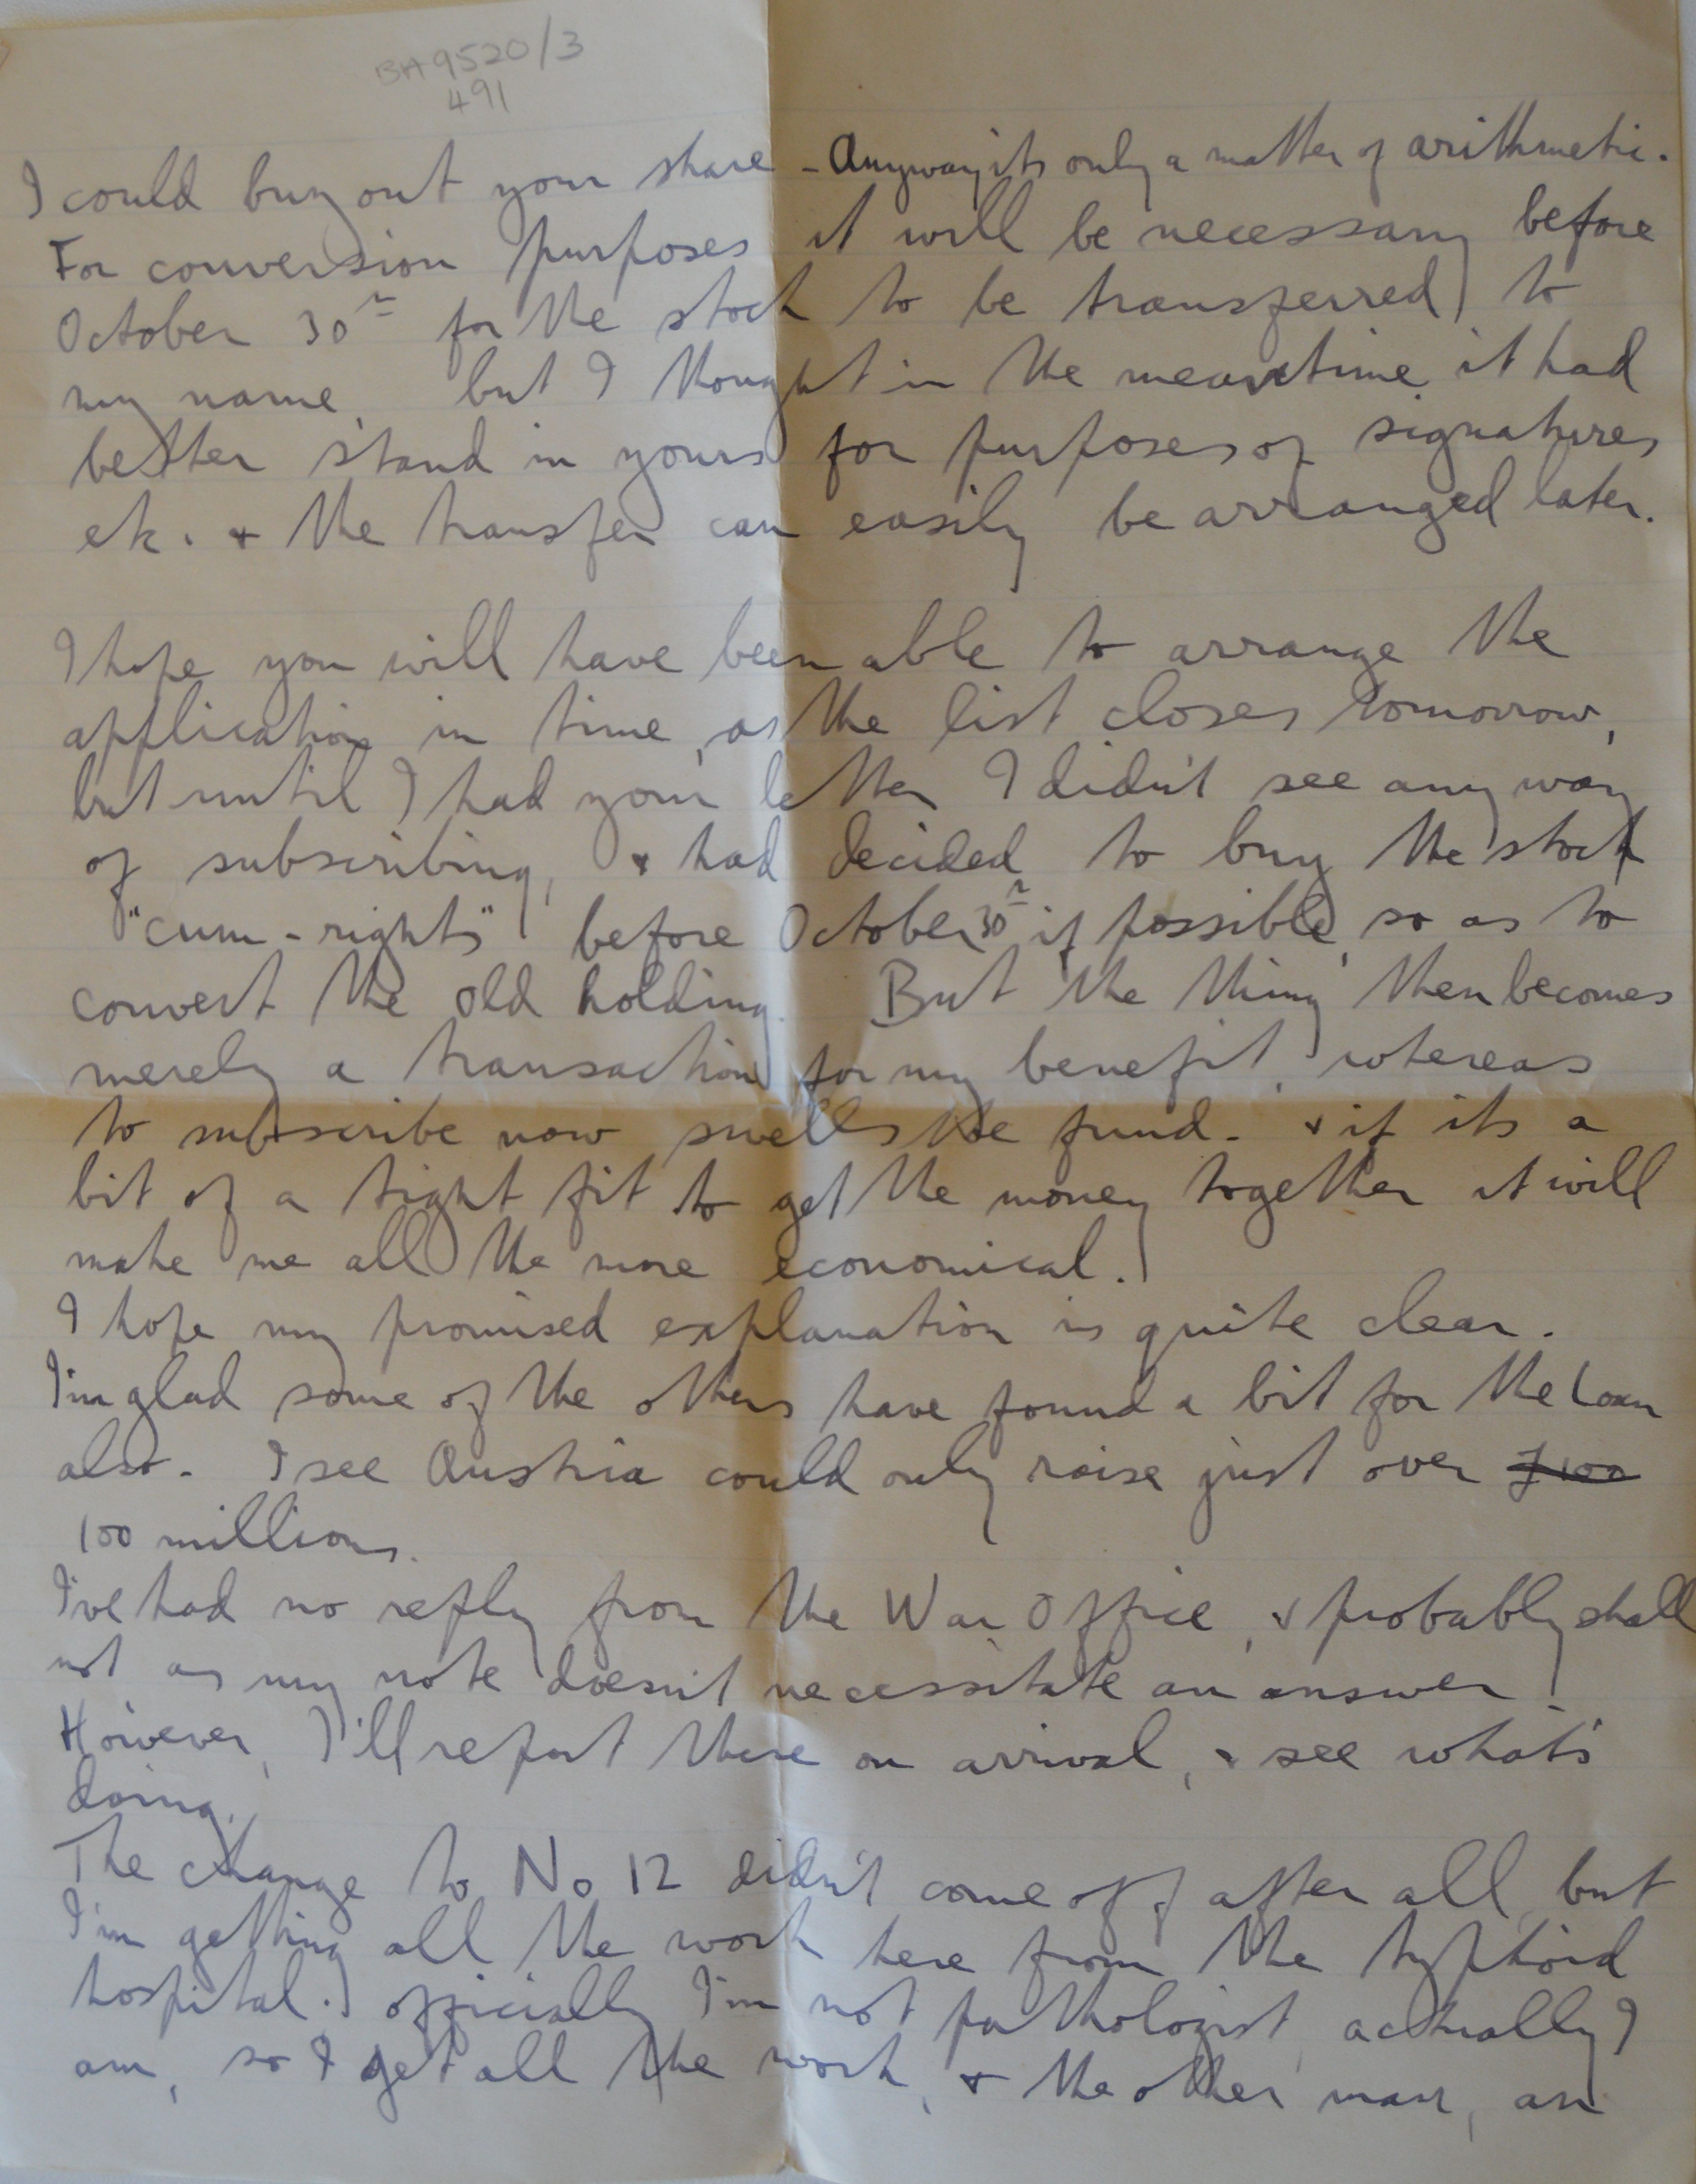 BA9520/3
491
I could buy out your share - Anyway its only a matter of arithmetic.
For conversion purposes it will be necessary before
October 30th for the stock to be transferred to
my name, but I thought in the meantime it had
better stand in yours for purposes of signatures
etc. & the transfer can easily be arranged later.
I hope you will have been able to arrange the
application in time, as the list closes tomorrow,
but until I had your letter I didn't see any way
of subscribing, & had decided to buy the stock
"cum-rights" before October 30th if possible, so as to
convert the old holding. But the thing then becomes
merely a transaction for my benefit, whereas
to subscribe now swells the fund. & if its a
bit of a tight fit to get the money together it will
make me all the more economical.
I hope my promised explanation is quite clear.
I'm glad some of the others have found a bit for the Loan
also. I see Austria could only raise just over £100
100 millions.
I've had no reply from the War Office, & probably shall
not as my note doesn't necessitate an answer.
However, I'll report there on arrival, & see what's
doing.
The change to No 12 didn't come off after all, but
I'm getting all the work here from the typhoid
hospital. Officially I'm not pathologist, actually I
am, so I get all the work, & the other man, an